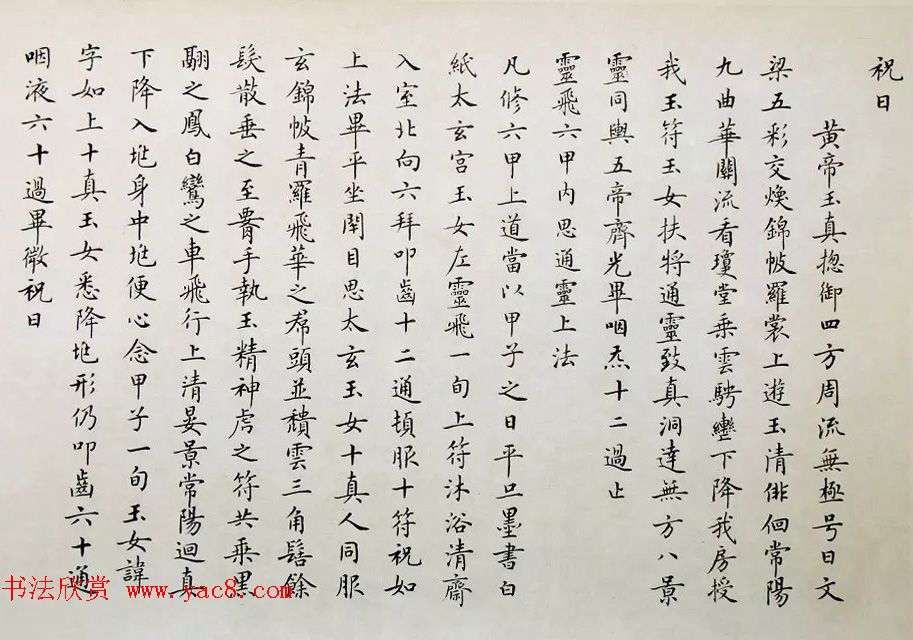 祝曰
黄帝玉真捴御四方周流無極号曰文
梁五彩交煥錦帔羅裳上遊玉清俳佪常陽
九曲華關流看瓊堂乗雲騁轡下降我房授
我玉符玉女扶将通靈致真洞達無方八景
靈同輿五帝齊光畢咽炁十二過止
靈飛六甲内思通靈上法
凡修六甲上道當以甲子之日平旦墨書白
紙太玄宫玉女左靈飛一旬上符沐浴清齋
入室北向六拜叩齒十二通頓服十符祝如
上法畢平坐閇目思太玄玉女十真人同服
玄錦帔青羅飛華之帬頭並穨雲三角髻餘
髮散垂之至𦝫手執玉精神虎之符共乗黑
翮之鳳白鸞之車飛行上清晏景常陽迴真
下降入𡊟身中𡊟便心念甲子一旬玉女諱
字如上十真玉女悉降𡊟形仍叩齒六十通
咽液六十過畢微祝曰
书法欣赏 www.yac8.com